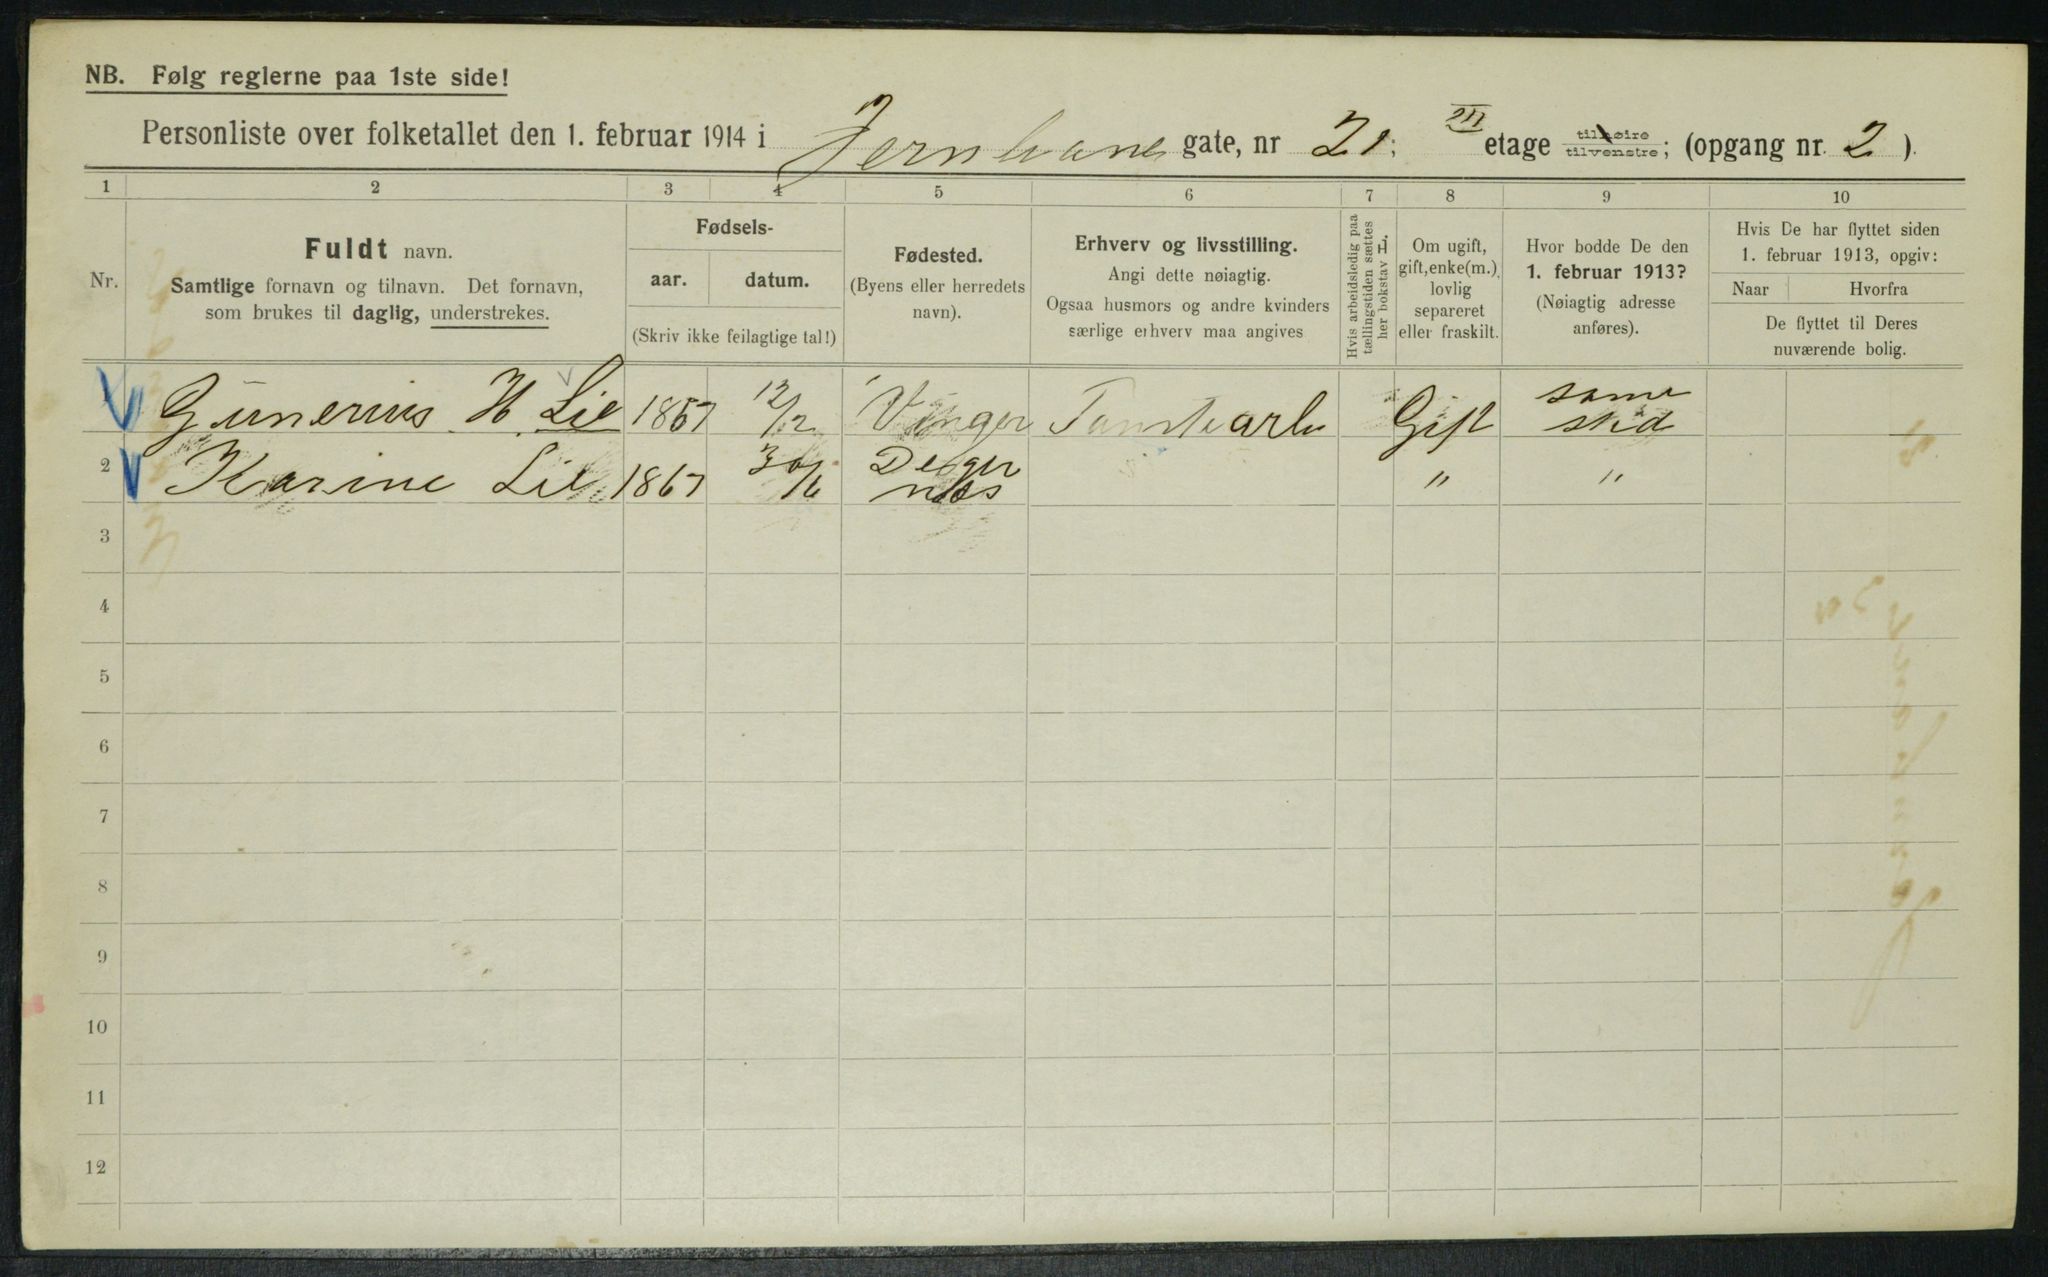 NB. Følg reglerne paa 1ste side!
Personliste over folketallet den 1. februar 1914 i Jernbane gate, nr 21; III etage tilhøire tilvenstre; (opgang nr. 2).
1 2 3 4 5 6 7 8 9 10
Nr.
Fuldt navn.
Samtlige fornavn og tilnavn. Det fornavn,
som brukes til daglig, understrekes.
Fødsels-
aar. datum.
(Skriv ikke feilagtige tal!)
Fødested.
(Byens eller herredets
navn).
Erhverv og livsstilling.
Angi dette nøiagtig.
Ogsaa husmors og andre kvinders
særlige erhverv maa angives
Hvis arbeidsledig paa
tællingstiden sættes
her bokstav L.
Om ugift,
gift, enke(m.),
lovlig
separeret
eller fraskilt.
Hvor bodde De den
1. februar 1913?
(Nøiagtig adresse
anføres).
Hvis De har flyttet siden
1. februar 1913, opgiv:
Naar Hvorfra
De flyttet til Deres
nuværende bolig.
Gunerius H. Lie 1867 12/12 Vinger Gift samme sted
2 Karine Lie 1867 30/6 " "
3
4
5
6
7
8
9
10
11
12